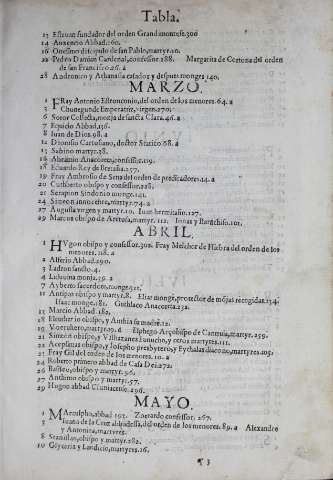 Tabla.
13 Esteuan fundador del orden Grandimontese.306
14 Auxencio Abbad.260.
16 Onesimo discipulo de san Pablo, martyr.10.
22 Pedro Damian Cardenal, confessor.288. Margarita de Cortona del orden
de san Francisco.26.a
28 Andronico y Athanasia casados y despues monges 140.
MARZO.
1 FRay Antonio Estronconio, del orden de los menores.64.a
3 Chunegunde Emperatriz, virgen.270.
6 Soror Collecta, monja de sancta Clara.46.a
7 Equicio Abbad.156.
8 Iuan de Dios.98.a
12 Dionisio Cartusano, doctor Statico.68.a
13 Sabino martyr.38.
16 Abramio Anacoreta, confessor.119.
18 Eduardo Rey de Bretaña.257.
19 Fray Ambrosio de Sena del orden de predicadores.14.a
20 Cuthberto obispo y confessor.228.
21 Serapion Sindonio monge.141.
24 Simeon innocente, martyr.74.a
27 Augusta virgen y martyr.10. Iuan hermitaño.127.
29 Marcos obispo de Aretusa, martyr.112. Ionas y Barachiso.101.
ABRIL.
1 HVgon obispo y confessor.308. Fray Melchor de Hiebra del orden de los
menores.118.a
2 Alferio Abbad.290.
3 Ladron sancto.4.
4 Liduuina monja.39.a
7 Ayberto sacerdote, monge.
11 Antipas obispo y martyr.8. Elias monge, protector de monjas recogidas.134.
Isaac monge.186. Guthlaco Anacoreta.232.
13 Marcio Abbad.182.
18 Eleuterio obispo, y Anthia su madre.12.
19 Vvernhero, martyr.9.d Elphego Arçobispo de Cantuaria, martyr.299.
21 Simeon obispo, y Vsthazanes Eunucho, y otros martyres.111.
22 Acepsimas obispo, y Iosepho presbytero, y Eychalas diacono, martyres.109.
23 Fray Gil del orden de los menores.10.a
24 Roberto primero abbad de Casa Dei.272.
26 Basileo, obispo y martyr.96.
27 Anthimo obispo y martyr.57.
29 Hugon abbad Cluniacense.296.
MAYO.
1 MArculpho, abbad 193. Zoerardo confessor.267.
3 Iuana de la Cruz abbadessa, del orden de los menores.89.a Alexandro
y Antonina, martyres.
8 Stanislao, obispo y martyr.282.
10 Glyceria y Laodicio, martyres.16.
¶ 3